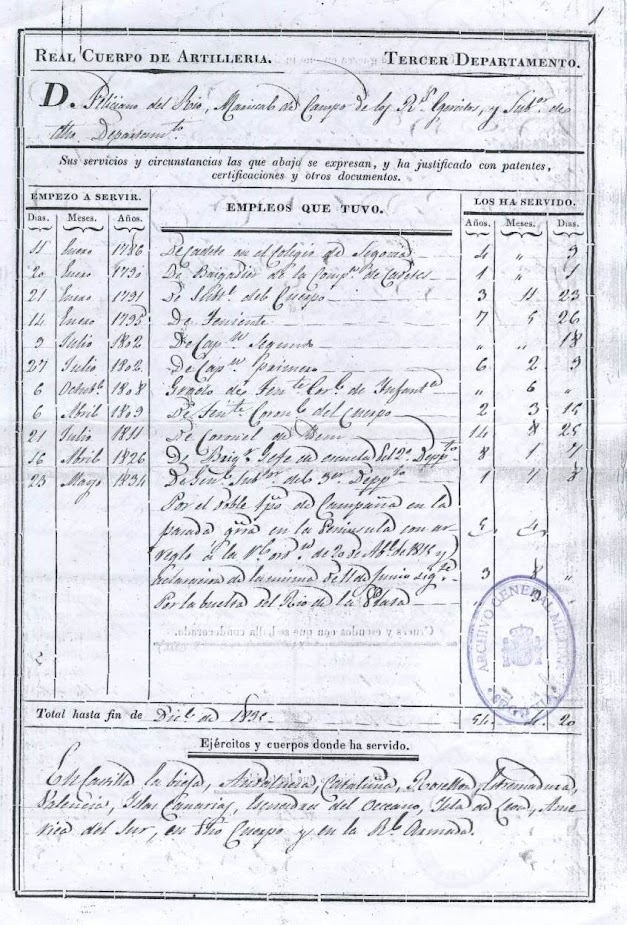 1
REAL CUERPO DE ARTILLERIA. TERCER DEPARTAMENTO.
D. Feliciano del Rio, Mariscal de Campo de los Rs. Egercitos, y Subor. de
dho Departamto.
Sus servicios y circunstancias las que abajo se expresan, y ha justificado con patentes,
certificaciones y otros documentos.
EMPEZO A SERVIR. EMPLEOS QUE TUVO. LOS HA SERVIDO.
Dias. Meses. Años. Años. Meses. Dias.
11 Enero 1786 De Cadete en el Colegio de Segovia 4 " 9
20 Enero 1790 De Brigadier de la Compa. de Cadetes 1 " 1
21 Enero 1791 De Subte. del Cuerpo 3 11 23
14 Enero 1795 De Teniente 7 5 26
9 Julio 1802 De Capn. Segundo " " 18
27 Julio 1802 De Capn. primero 6 2 9
6 Octube. 1808 Grado de Tente. Corl. de Infanta. " 6 "
6 Abril 1809 De Tente. Coronel del Cuerpo 2 3 15
21 Julio 1811 De Coronel de Idem 14 8 25
16 Abril 1826 De Brigr. Gefe de escuela del 2o. Deppto. 8 1 7
23 Mayo 1834 De Genl. Subor. del 3er. Deppto. 1 7 8
Por el doble tpo. de Campaña en la
pasada grra en la Peninsula con ar 5 4
reglo á la Rl. ordn. de 20 de Abl. de 1815 y
declaracion de la misma de 11 de Junio sigte. 3 8 "
Por la buelta del Rio de la Plata " 9
ARCHIVO GENERAL MILITAR
SEGOVIA
Total hasta fin de Dice. de 1835 54 11 20
Ejércitos y cuerpos donde ha servido.
En Castilla la bieja, Andalucia, Cataluña, Rosellon, Estremadura,
Valencia, Islas Canarias, Escuadra del Occeano, Isla de Leon, Ame
rica del Sur, en dho Cuerpo y en la Rl. Armada.